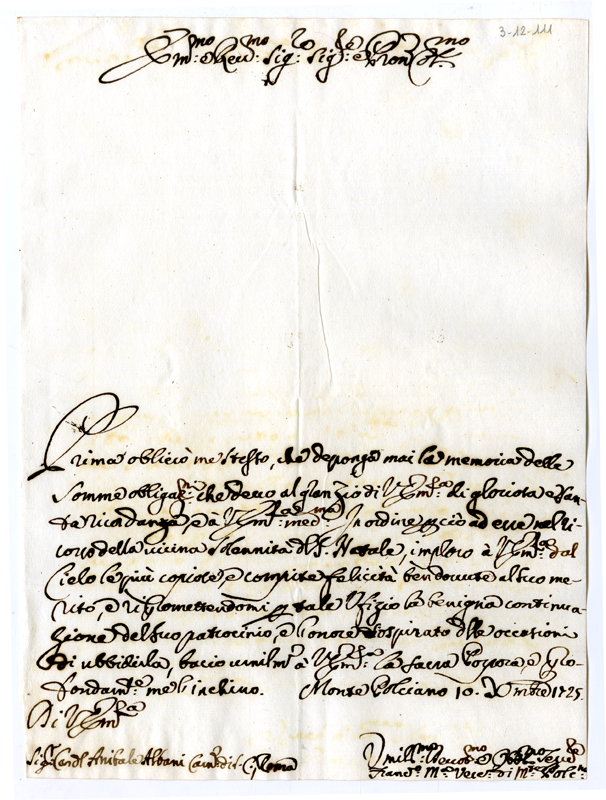 3-12-111
Em:mo e Rev:mo Sig:re Sig:re e Pron: Col:mo
Prima oblierò me stesso, che deponga mai la memoria delle
somme obligaz:ni che devo al gran Zio di V. Em:za di gloriosa e san-
ta ricordanza, e à V. Em:za med:ma In ordine perciò ad esse nel ri-
corso della vicina solennità del S. Natale, imploro à V. Em:za dal
Cielo le più copiose, e compite felicità ben dovute al suo me-
rito, e ripromettendomi per tale Ufizio la benigna continua-
zione del suo patrocinio, e l'onore sospirato delle occasioni
di ubbidirla, bacio umilm:e à V. Em:za la sacra Porpora, e pro-
fondam:te me l'inchino. Monte Polciano 10. Xmbre 1725.
Di V. Em:za
Sig:r Card:l Anibale Albani Cam:o di S. C. Roma
Umill:mo Devot:mo Obbl:mo Serv:re
Franc:o M:a Vesc:o di M:te Polc:no